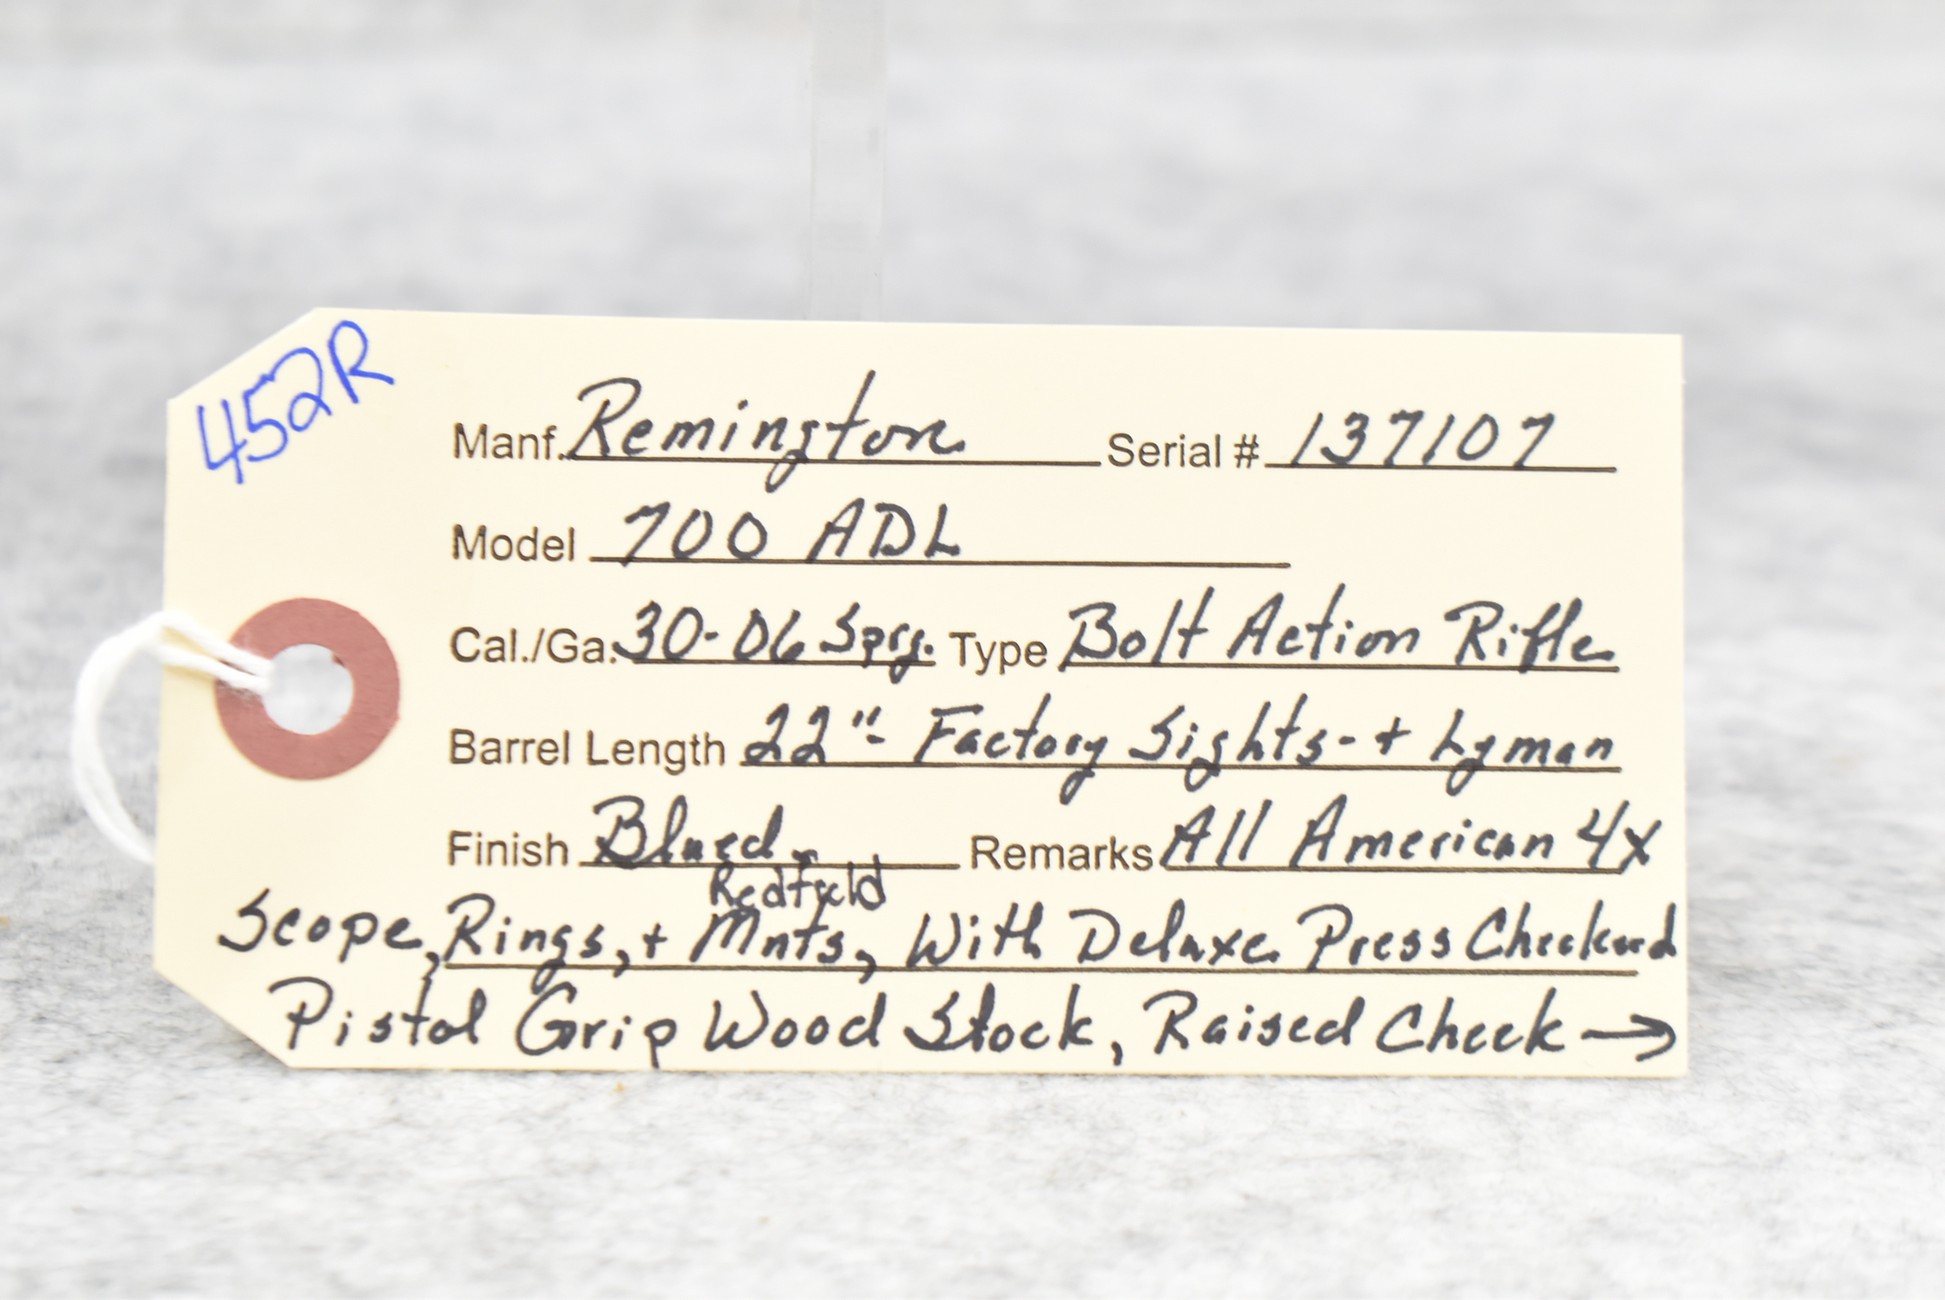 452R
Manf. Remington Serial # 137107
Model 700 ADL
Cal./Ga. 30-06 Sprg. Type Bolt Action Rifle
Barrel Length 22"- Factory Sights-+ Lyman
Finish Blued- Remarks All American 4x
Redfield
Scope, Rings, + Mnts, With Deluxe Press Checkered
Pistol Grip Wood Stock, Raised Cheek →